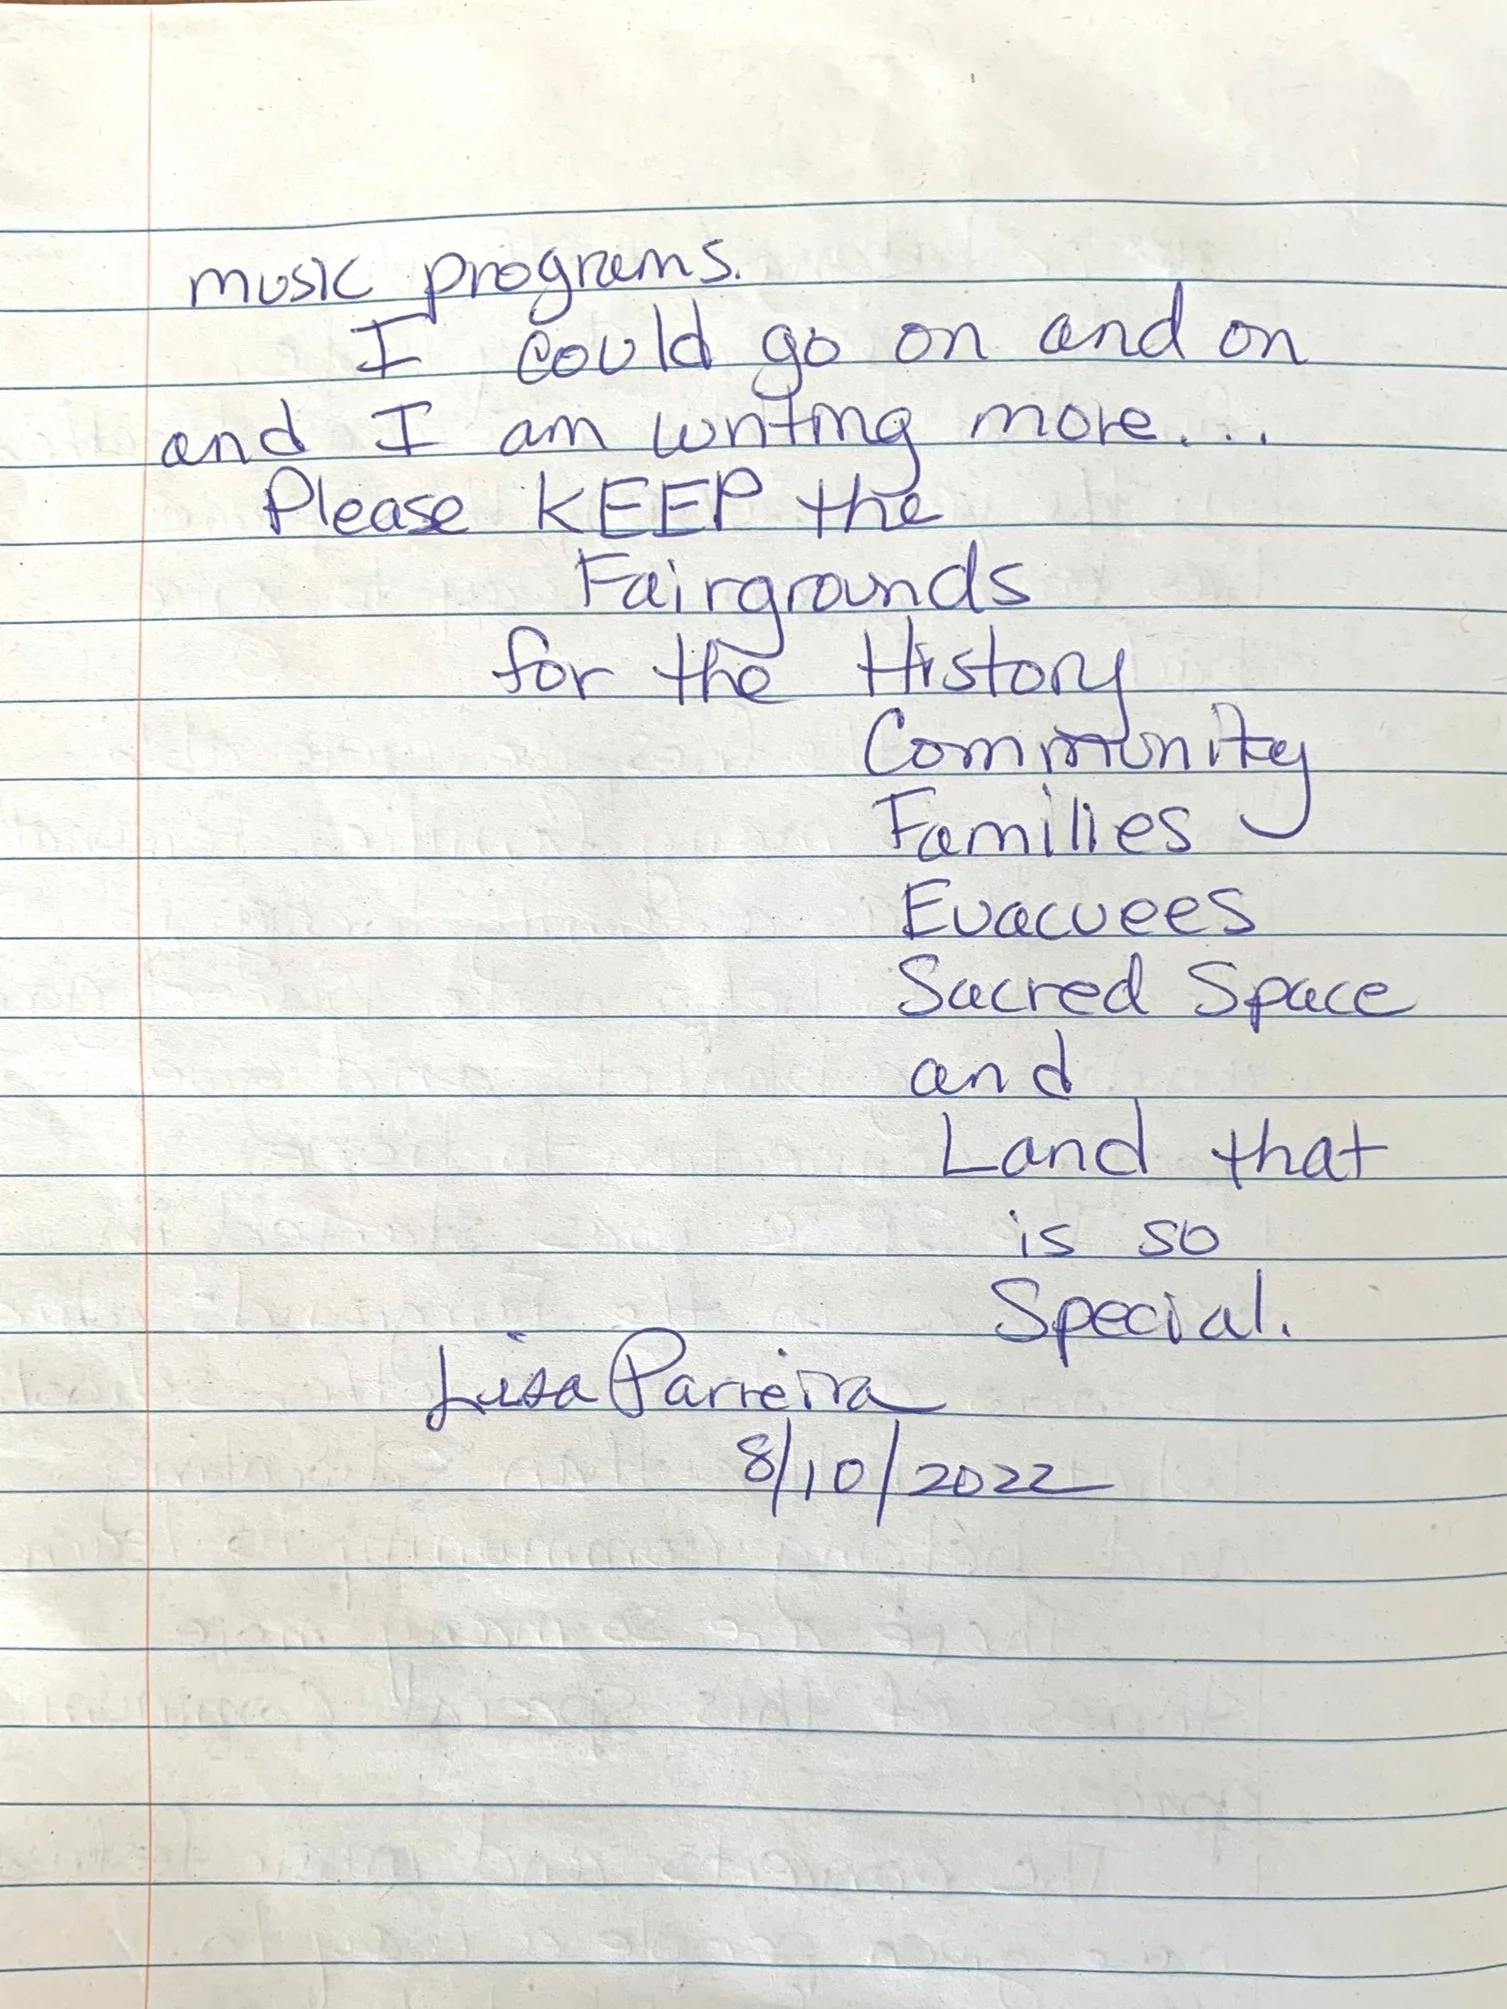 music programs.
I could go on and on
and I am writing more....
Please KEEP the
Fairgrounds
for the History
Community
Families
Evacuees
Sacred Space
and
Land that
is so
Special.
Lisa Parreira
8/10/2022